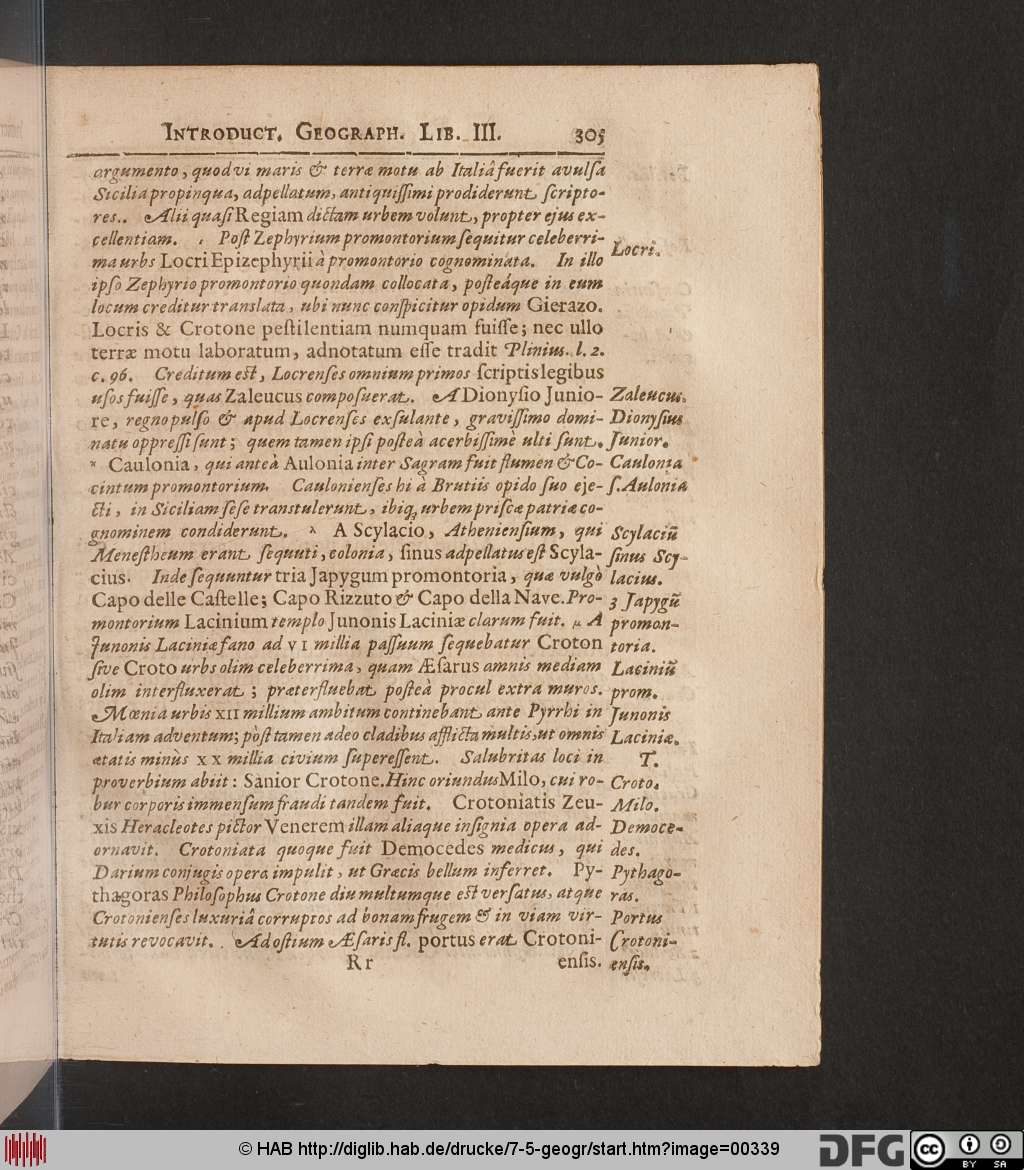 INTRODUCT. GEOGRAPH. LIB. III. 305
argumento, quod vi maris & terræ motu ab Italiâ fuerit avulsa
Sicilia propinqua, adpellatum, antiquissimi prodiderunt scripto-
res.. Alii quasi Regiam dictam urbem volunt, propter ejus ex-
cellentiam. Post Zephyrium promontorium sequitur celeberri-
ma urbs Locri Epizephyrii à promontorio cognominata. In illo
Locri.
ipso Zephyrio promontorio quondam collocata, posteáque in eum
locum creditur translata, ubi nunc conspicitur opidum Gierazo.
Locris & Crotone pestilentiam numquam fuisse; nec ullo
terræ motu laboratum, adnotatum esse tradit Plinius. l. 2.
c. 96. Creditum est, Locrenses omnium primos scriptis legibus
usos fuisse, quas Zaleucus composuerat. A Dionysio Junio-
Zaleucus.
re, regno pulso & apud Locrenses exsulante, gravissimo domi-
Dionysius
natu oppressi sunt; quem tamen ipsi posteà acerbissimè ulti sunt.
Junior.
ˣ Caulonia, qui anteà Aulonia inter Sagram fuit flumen & Co-
Caulonia
cintum promontorium. Caulonienses hi à Brutiis opido suo eje-
s. Aulonia
cti, in Siciliam sese transtulerunt, ibiq; urbem priscæ patriæ co-
gnominem condiderunt. λ A Scylacio, Atheniensium, qui
Scylaciũ
Menestheum erant sequuti, colonia, sinus adpellatus est Scyla-
sinus Scy-
cius. Inde sequuntur tria Japygum promontoria, quæ vulgò
lacius.
Capo delle Castelle; Capo Rizzuto & Capo della Nave. Pro-
3 Japygũ
montorium Lacinium templo Junonis Laciniæ clarum fuit. μ A
promon-
Junonis Laciniæ fano ad VI millia passuum sequebatur Croton
toria.
sive Croto urbs olim celeberrima, quam Æsarus amnis mediam
Laciniũ
olim interfluxerat; præterfluebat posteà procul extra muros.
prom.
Mœnia urbis XII millium ambitum continebant ante Pyrrhi in
Junonis
Italiam adventum; pòst tamen adeo cladibus afflicta multis, ut omnis
Laciniæ.
ætatis minùs XX millia civium superessent. Salubritas loci in
T.
proverbium abiit: Sanior Crotone. Hinc oriundus Milo, cui ro-
Croto.
bur corporis immensum fraudi tandem fuit. Crotoniatis Zeu-
Milo.
xis Heracleotes pictor Venerem illam aliaque insignia opera ad-
Democe-
ornavit. Crotoniata quoque fuit Democedes medicus, qui
des.
Darium conjugis opera impulit, ut Græcis bellum inferret. Py-
Pythago-
thagoras Philosophus Crotone diu multumque est versatus, atque
ras.
Crotonienses luxuriâ corruptos ad bonam frugem & in viam vir-
Portus
tutis revocavit. Ad ostium Æsaris fl. portus erat Crotoni-
Crotoni-
Rr ensis.
ensis.
© HAB http://diglib.hab.de/drucke/7-5-geogr/start.htm?image=00339
DFG cc BY SA